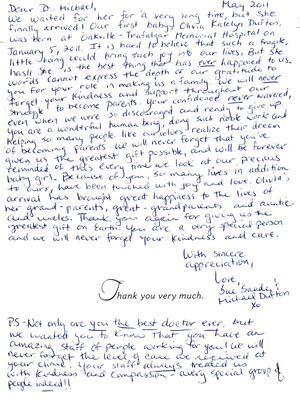 Dear Dr. Michael, May 2011
We waited for her for a very long time, but she
finally arrived! Our first baby, Olivia Katelyn Dutton,
was born at Oakville-Trafalgar Memorial Hospital on
January 5, 2011. It is hard to believe that such a fragile,
little thing would bring such joy into our lives. But she
has!! She is the best thing that has ever happened to us.
Words cannot express the depth of our gratitude to
you for your role in making us a family. We will never
forget your kindness and support throughout our
struggle to become parents. Your confidence never wavered,
even when we were so discouraged and ready to give up.
You are a wonderful human being, doing such noble work and
helping so many people like ourselves, realize their dream
of becoming parents. We will never forget that you've
given us the greatest gift possible, and will be forever
reminded of this every time we look at our precious
baby girl. Because of you, so many lives in addition
to ours, have been touched with joy and love. Olivia's
arrival has brought great happiness to the lives of
her grand-parents, great-grandparents and auntie
and uncles. Thank you again for giving us the
greatest gift on Earth. You are a very special person
and we will never forget your kindness and care.
With sincere
appreciation,
Love,
Sue
Michael Dutton
xo
Thank you very much.
PS-Not only are you the best doctor ever, but
we wanted you to know that you have an
amazing staff of people working for you! We will
never forget the level of care we received at
your clinic. Your staff always treated us
with kindness and compassion - a very special group of
people indeed!!